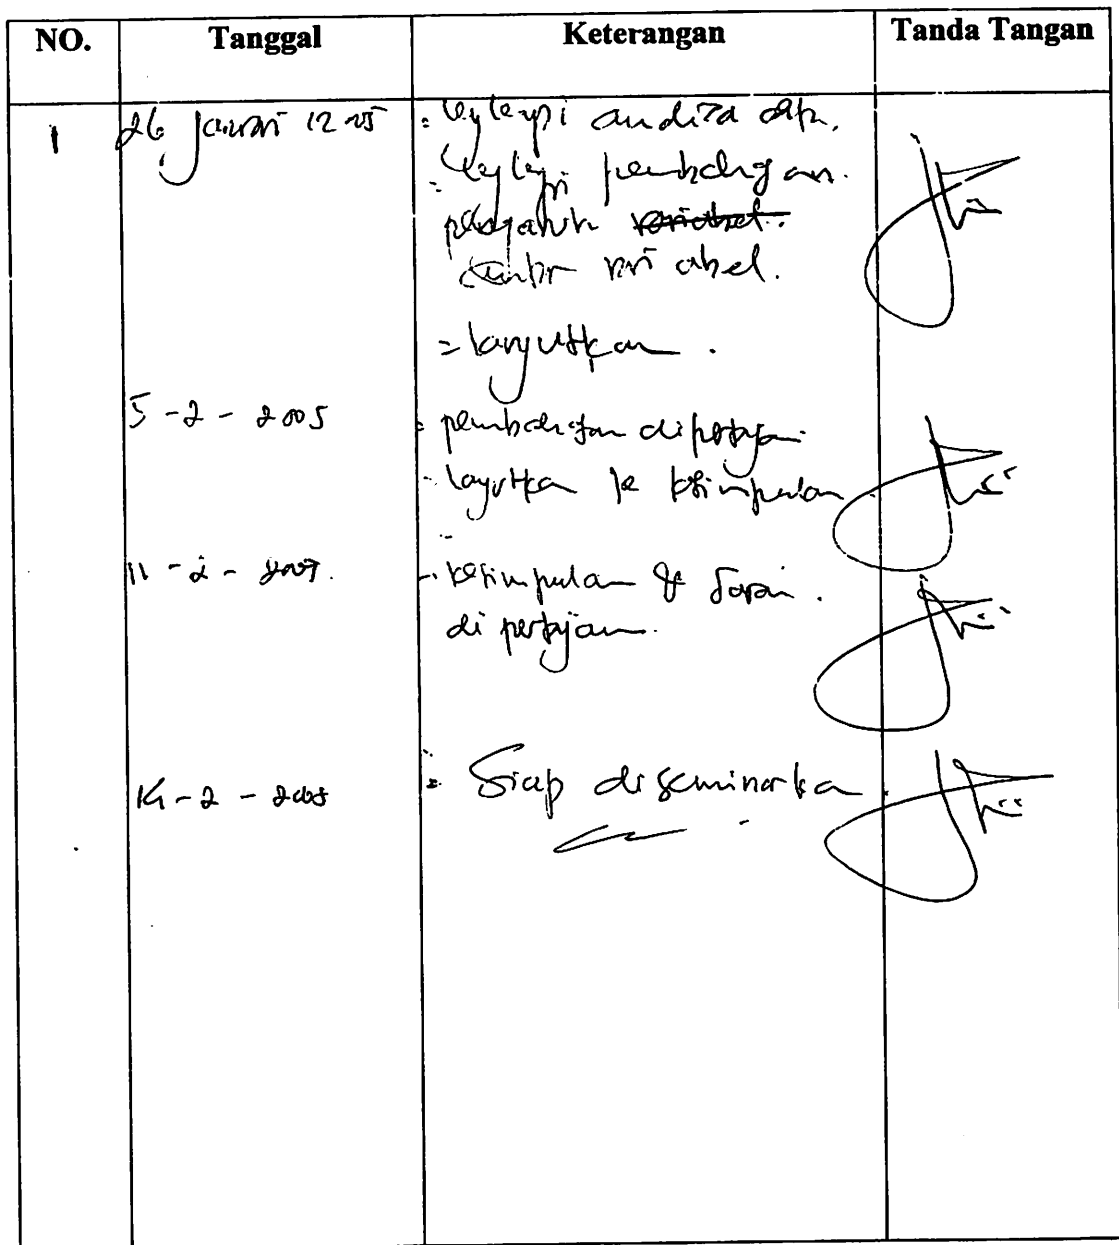 NO. Tanggal Keterangan Tanda Tangan
1 26 Januari
pengaruh variabel.
antar variabel.
= lanjutkan.
5-2-2005 pembahasan dipertajam
- lanjutkan ke kesimpulan
11-2-2005. - kesimpulan & saran.
di pertajam.
14-2-2005 = Siap diseminarkan